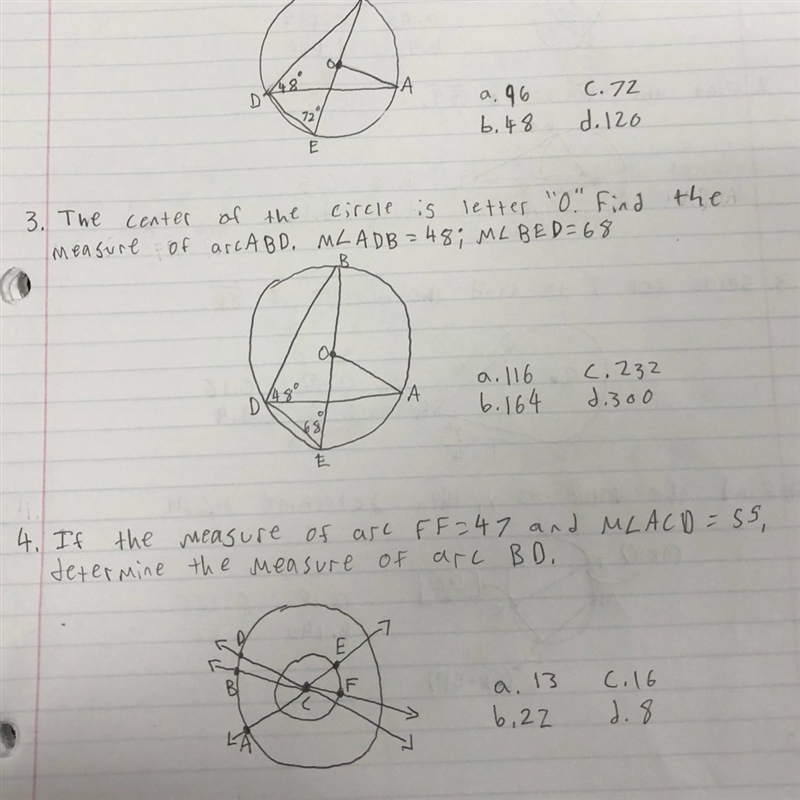 O
48°
D
A
72°
E
a. 96 c. 72
b. 48 d. 120
3. The center of the circle is letter "O." Find the
measure of arcABD. M∠ADB = 48; M∠BED = 68
B
O
48°
D
A
68°
E
a. 116 c. 232
b. 164 d. 300
4. If the measure of arc FF = 47 and M∠ACD = 55,
determine the measure of arc BD.
D
E
B
F
C
A
a. 13 c. 16
b. 22 d. 8